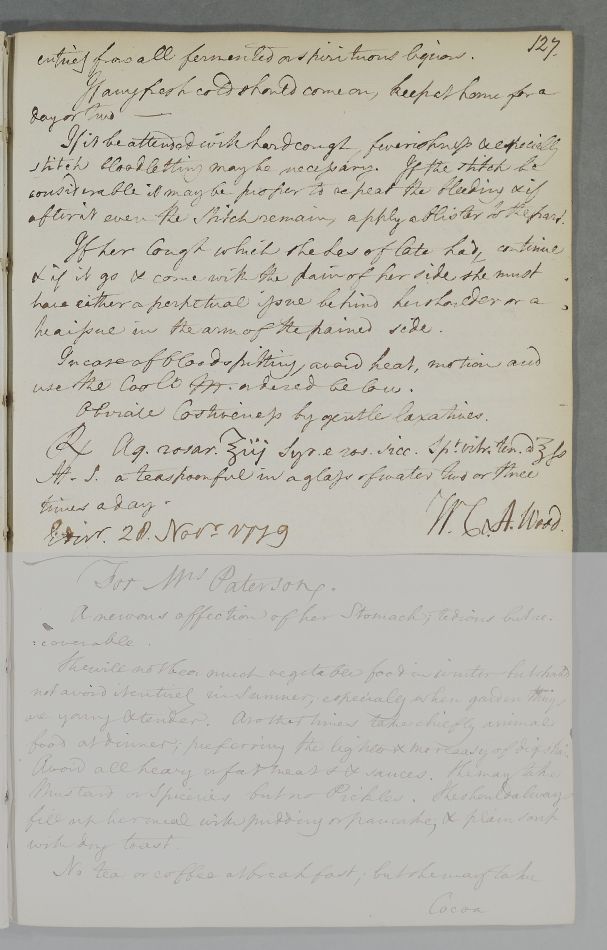 127.
entirely from all fermented or spirituous liquors.
If any fresh cold should come on, keep at home for a
day or two —
If it be attended with hard cough, feverishness & especially
stitch bloodletting may be necessary. If the stitch be
considerable it may be proper to repeat the bleeding & if
after it even the stitch remain, apply a blister to the part.
If her Cough which she has of late had, continue
& if it go & come with the pain of her side she must
have either a perpetual issue behind her shoulder or a
pea issue in the arm of the pained side.
In case of bloodspitting, avoid heat, motion and
use the Cool ordered below.
Obviate Costiveness by gentle laxatives.
℞ Aq. rosar. ℥iij Syr. e ros. sicc. Spt. vitr. ten. a ℥ss
M. S. a teaspoonful in a glass of water two or three
times a day.
Edinr. 28. Novr. 1779 W. C. & A. Wood.
For Mrs Paterson.
A nervous affection of her Stomach; tedious but re-
:coverable.
She will not bear much vegetable food in winter but should
not avoid it entirely in Summer, especially when garden things
are young & tender. At other times take chiefly animal
food at dinner; preferring the lighter & more easy of digestion.
Avoid all heavy or fat meats & sauces. She may take
Mustard or Spiceries but no Pickles. She should always
fill up her meal with pudding or pancake, & plain
with dry toast.
No tea or coffee at breakfast; but she may take
Cocoa